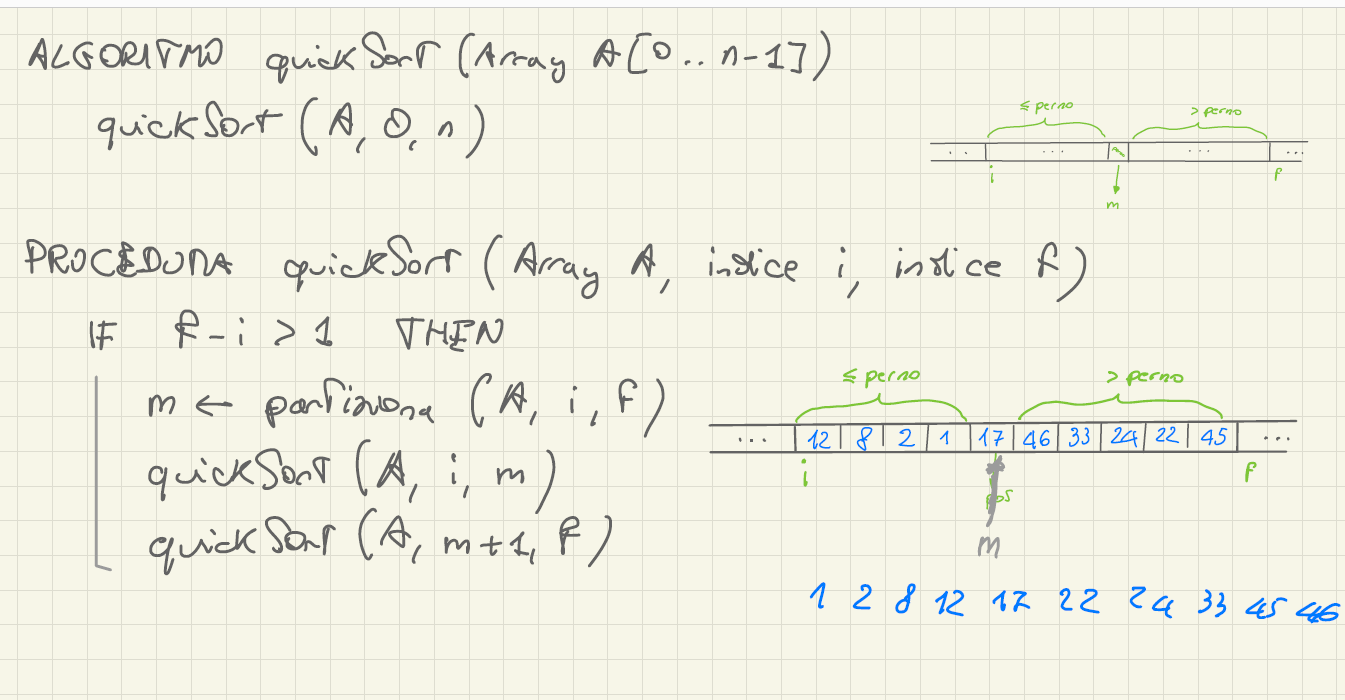 ALGORITMO quickSort (Array A[0..n-1])
quickSort (A, 0, n)
≤ perno > perno
... ... ...  ...
i f
m
PROCEDURA quickSort (Array A, indice i, indice f)
IF f-i > 1 THEN
m ← partiziona (A, i, f)
quickSort (A, i, m)
quickSort (A, m+1, f)
≤ perno > perno
... 12 8 2 1 17 46 33 24 22 45 ...
i f
m
1 2 8 12 17 22 24 33 45 46